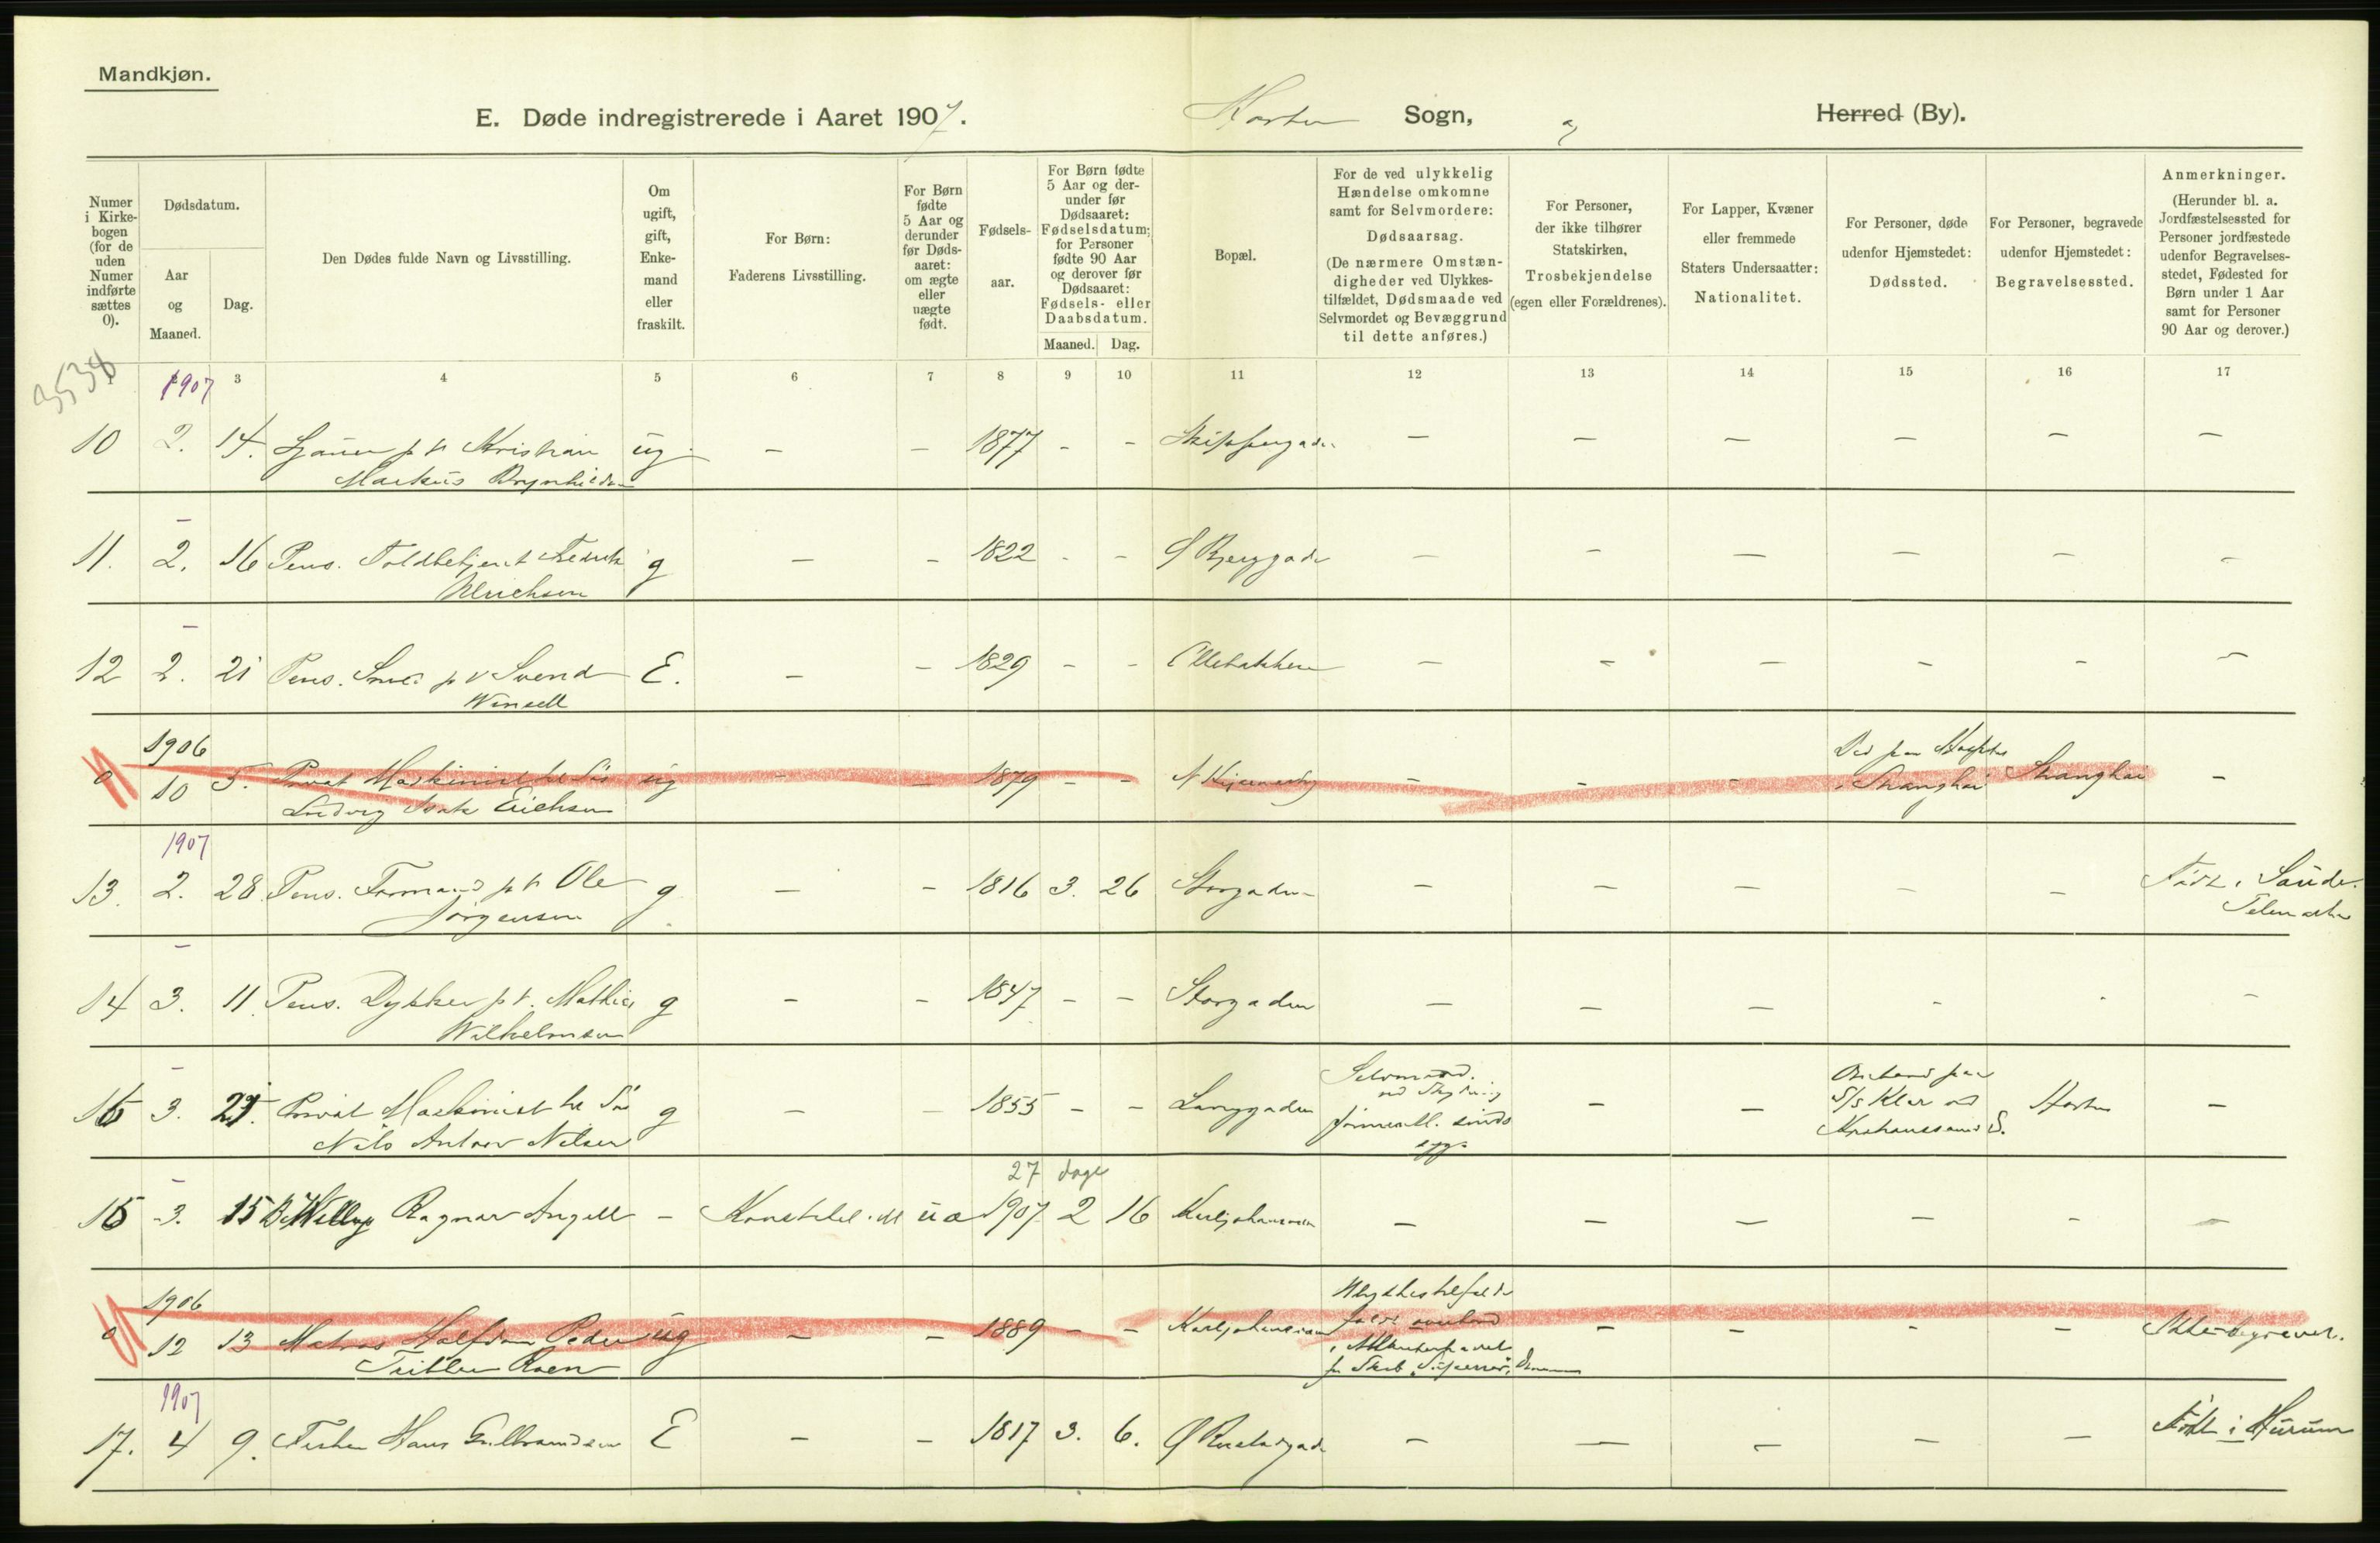 Mandkjøn.
E. Døde indregistrerede i Aaret 1907. Horten Sogn, og Herred (By).
Numer i Kirkebogen (for de uden Numer indførte sættes 0).
Dødsdatum.
Aar og Maaned.
Dag.
Den Dødes fulde Navn og Livsstilling.
Om ugift, gift, Enkemand eller fraskilt.
For Børn: Faderens Livsstilling.
For Børn fødte 5 Aar og derunder før Dødsaaret: om ægte eller uægte født.
Fødselsaar.
For Børn fødte 5 Aar og derunder før Dødsaaret: Fødselsdatum; for Personer fødte 90 Aar og derover før Dødsaaret: Fødsels- eller Daabsdatum.
Maaned. Dag.
Bopæl.
For de ved ulykkelig Hændelse omkomne samt for Selvmordere: Dødsaarsag. (De nærmere Omstændigheder ved Ulykkestilfældet, Dødsmaade ved Selvmordet og Bevæggrund til dette anføres.)
For Personer, der ikke tilhører Statskirken, Trosbekjendelse (egen eller Forældrenes).
For Lapper, Kvæner eller fremmede Staters Undersaatter: Nationalitet.
For Personer, døde udenfor Hjemstedet: Dødssted.
For Personer, begravede udenfor Hjemstedet: Begravelsessted.
Anmerkninger. (Herunder bl. a. Jordfæstelsessted for Personer jordfæstede udenfor Begravelsesstedet, Fødested for Børn under 1 Aar samt for Personer 90 Aar og derover.)
3534 1907 3 4 5 6 7 8 9 10 11 12 13 14 15 16 17
10 2. 14. p v Kristian ug. - - 1877 - - Skippergaden - - - - - -
Markus Brynhildsen
11. 2. 16 Pens. Toldbetjent Fredrik g - - 1822 - - Ø Bjerggade - - - - - -
Ulrichsen
12 2. 21 Pens. Smed p v Svend E. - - 1829 - - Ollebakken - - - - - -
Wensell
1906
0 10 5. Privat Maskinist til Søs ug - - 1879 - - - - - i Shanghai Shanghai -
Ludvig Erichsen
1907
13. 2. 28 Pens. Formand p v Ole g - - 1816 3. 26 Storgaden - - - - - Født i Saude.
Jørgensen Telemarken
14 3. 11. Pens. Dykker p v. Mathias g - - 1847 - - Storgaden - - - - - -
Wilhelmsen
Selvmord.
16 3. 21. Privat Maskinist til Søs g - - 1855 - - Langgaden - - S/S Klar ved Horten -
Nils Anton Nilsen Kristianssand S.
27 dage
15 3. 15 Willy Ragnar Angell - ua 1907 2 16 Karljohansvern - - - - - -
1906
0 12 13 Matros Halfdan Peder ug - - 1889 - - Karljohansvern - - - - Ikke begravet.
Roen
1907
17. 4 9. Fisker Hans Gulbrandsen E - - 1817 3. 6. - - - - - Født i Hurum